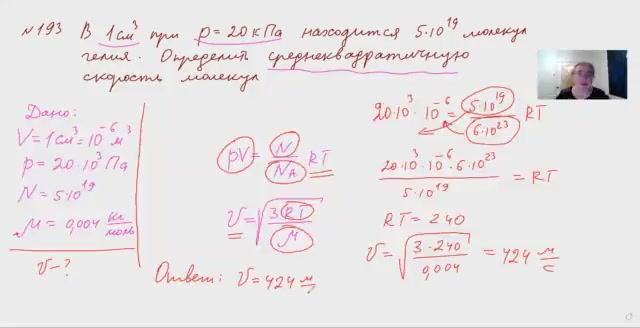 №193 В 1 см³ при p = 20 кПа находится 5·10¹⁹ молекул
гелия. Определить среднеквадратичную
скорость молекул
Дано:
V = 1 см³ = 10⁻⁶ м³
p = 20·10³ Па
N = 5·10¹⁹
M = 0,004 кг/моль
v - ?
pV = N/N_A RT
v = √(3RT/M)
Ответ: v = 424 м/с
20·10³·10⁻⁶ = 5·10¹⁹/6·10²³ RT
20·10³·10⁻⁶·6·10²³/5·10¹⁹ = RT
RT = 240
v = √(3·240/0,004) = 424 м/с